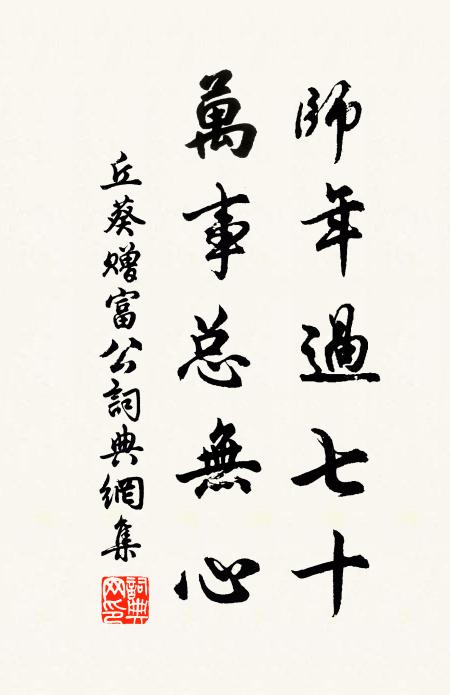 師年過七十
萬事总無心
丘葵赠富公詞典網集
詞典
网印